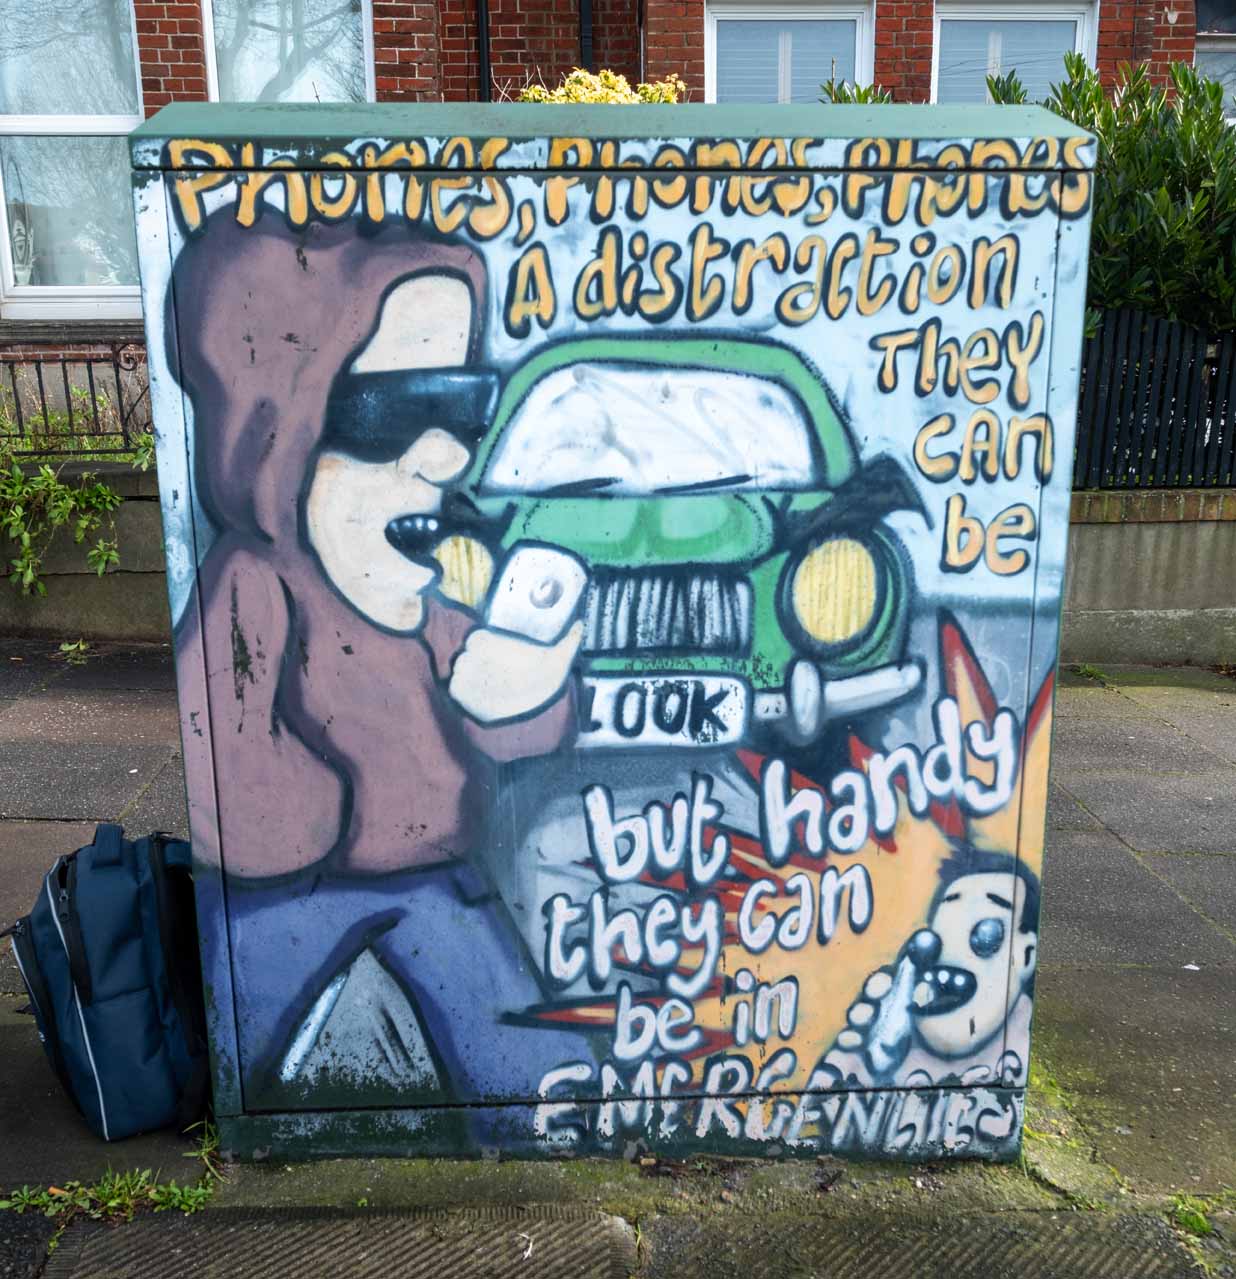 Phones, Phones, Phones
A distraction
They
can
be
LOOK
but handy
they can
be in
EMERGENCIES